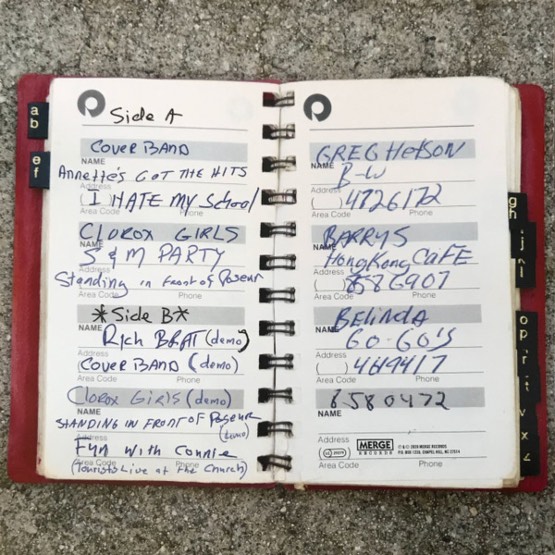 ab
ef
Side A
COVER BAND
NAME
Annette's GOT THE HITS
Address
( ) I HATE MY School
Area Code Phone
CLOROX GIRLS
NAME
S & M PARTY
Address
Standing in front of Poseur
Area Code Phone
*Side B*
NAME
Rich BRAT (demo)
Address
COVER BAND (demo)
Area Code Phone
Clorox Girls (demo)
NAME
STANDING IN FRONT OF Poseur
(demo)
Address
Fun With Connie
(Tourists Live at the Church)
Area Code Phone
GREG HETSON
NAME
B-W
Address
( ) 4726172
Area Code Phone
BARRYS
NAME
HongKong CAFE
Address
( ) 8586907
Area Code Phone
BELINDA
NAME
GO-GO'S
Address
( ) 4619417
Area Code Phone
6580472
NAME
Address
( )
MERGE
RECORDS
Area Code Phone
gh
j
l
op
r
t
v
x
z